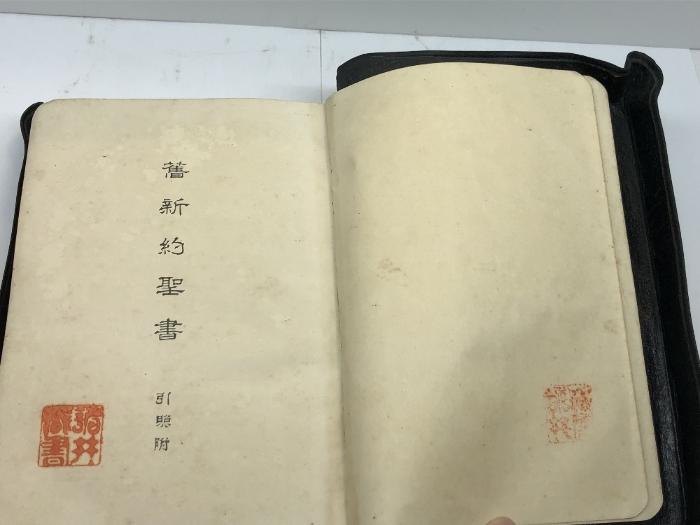 舊新約聖書
引照附